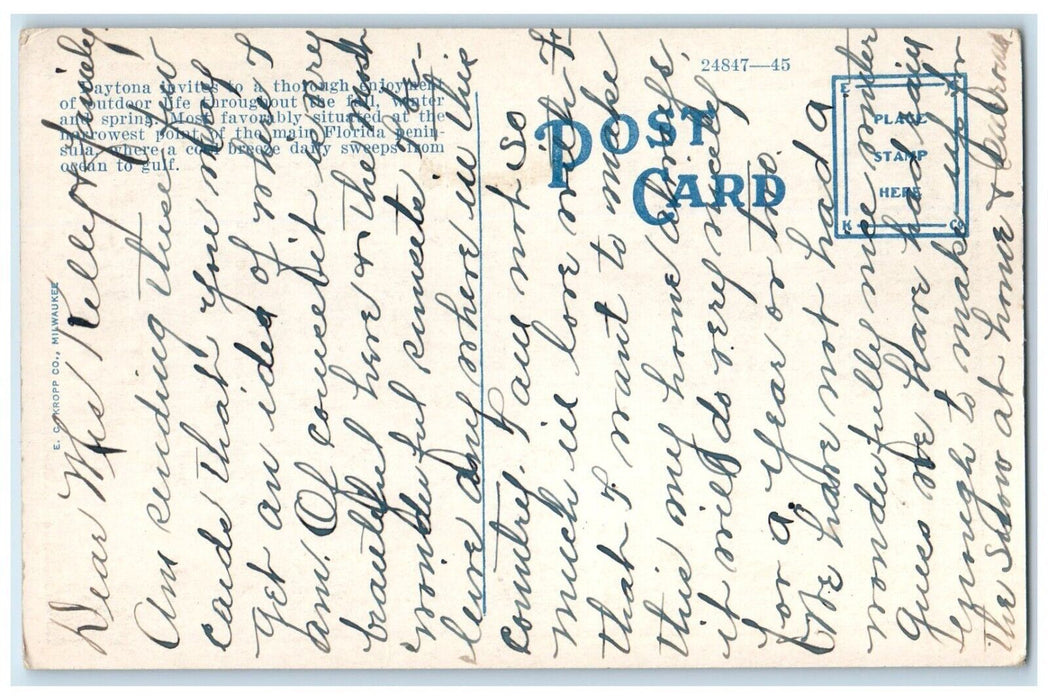 Daytona invites to a thorough enjoyment
of outdoor life throughout the fall, winter
and spring. Most favorably situated at the
narrowest point of the main Florida penin-
sula, where a cool breeze daily sweeps from
ocean to gulf.
24847—45
POST
CARD
PLACE
STAMP
HERE
E. C. KROPP CO., MILWAUKEE
E
K
C
Dear Mrs Kelley & family
Am sending these few
cards that you may
get an idea of where I
am. Of course it is very
beautiful here & the most
wonderful sunsets I ever
any where in this
country. I am not so
much in love with it
that I want to make
this my home always
it will do very nicely
for a year or to.
We have not had a
wonderfully nice winter
guess we have had rain
enough to make up for
the snow at home &